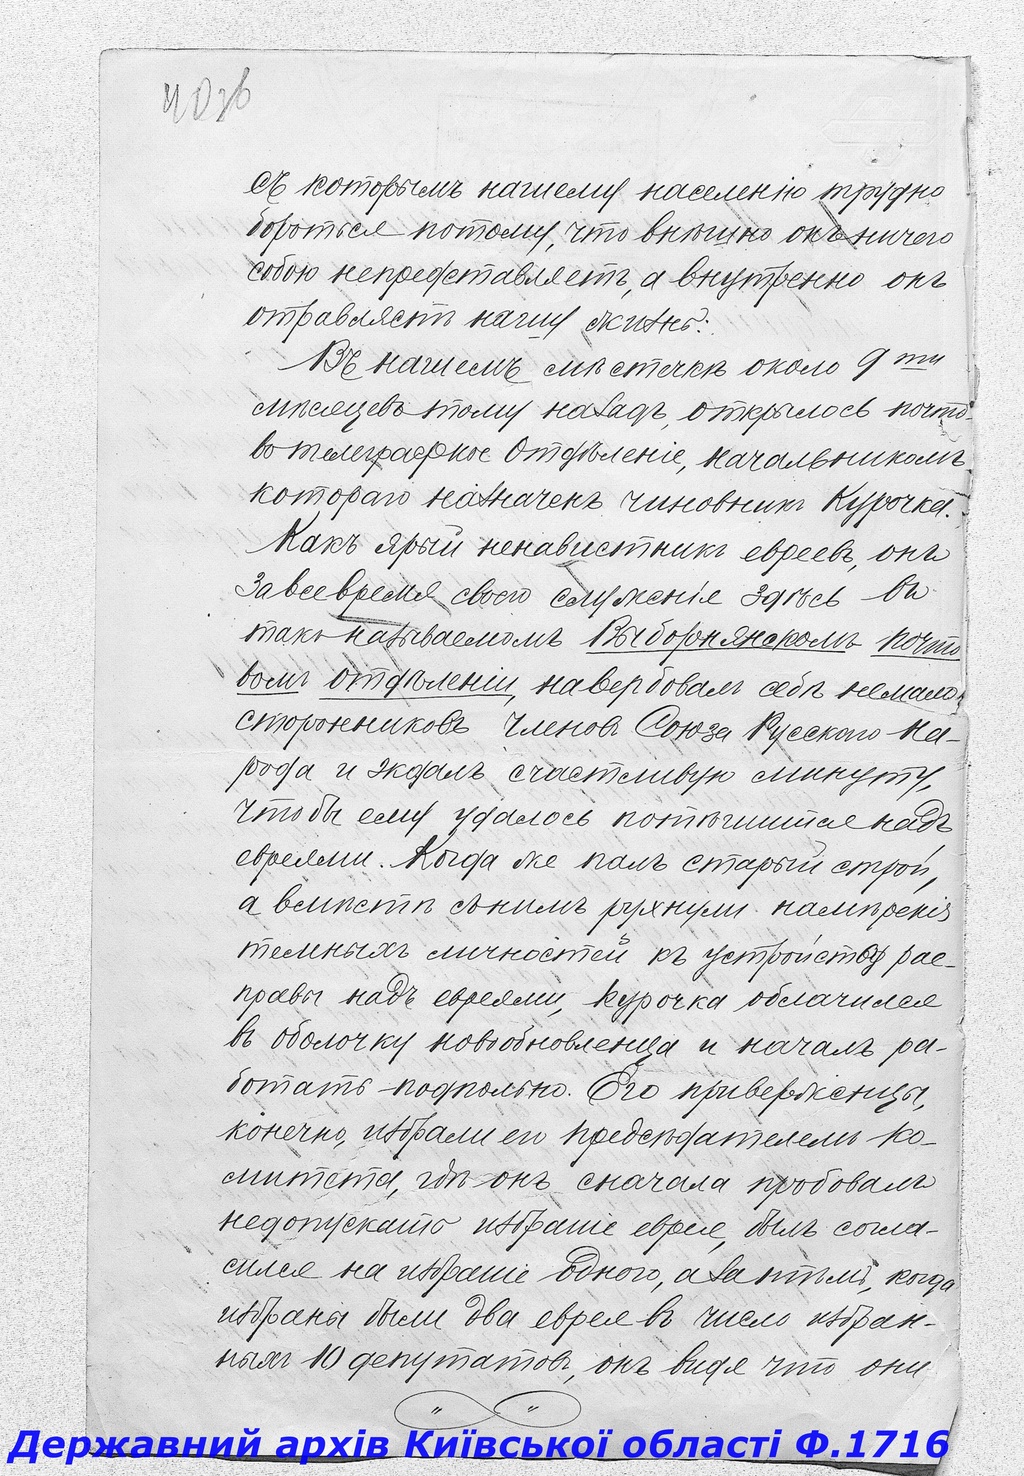 40 зв
съ которымъ нашему населенію трудно
бороться потому, что внѣшно онъ ничего
собою непредставляетъ, а внутренно онъ
отравляетъ нашу жизнь.
Въ нашемъ мѣстечкѣ около 9ти
мѣсяцевъ тому назадъ, открылось почто-
во телеграфное Отдѣленіе, начальникомъ
котораго назначенъ чиновникъ Курочка.
Какъ ярый ненавистникъ евреевъ, онъ
за все время своего служенія здѣсь въ
такъ называемомъ Выборнянскомъ почто
вомъ отдѣленіи, навербовалъ себѣ немало
сторонниковъ членовъ Союза Русского На-
рода и ждалъ счастливую минуту,
чтобы ему удалось потѣшится надъ
евреями. Когда же палъ старый строй,
а вмѣстѣ съ нимъ рухнули намѣренія
темныхъ личностей къ устройству рас-
правы надъ евреями, Курочка облачился
въ оболочку новообновленца и началъ ра-
ботать подпольно. Его приверженцы,
конечно, избрали его предсѣдателемъ ко-
митета, гдѣ онъ сначала пробовалъ
недопускать избраніе еврея, былъ согла-
сился на избраніе одного, а затѣмъ, когда
избраны были два еврея въ число избран-
ныхъ 10 депутатовъ, онъ видя что они
Державний архів Київської області Ф.1716